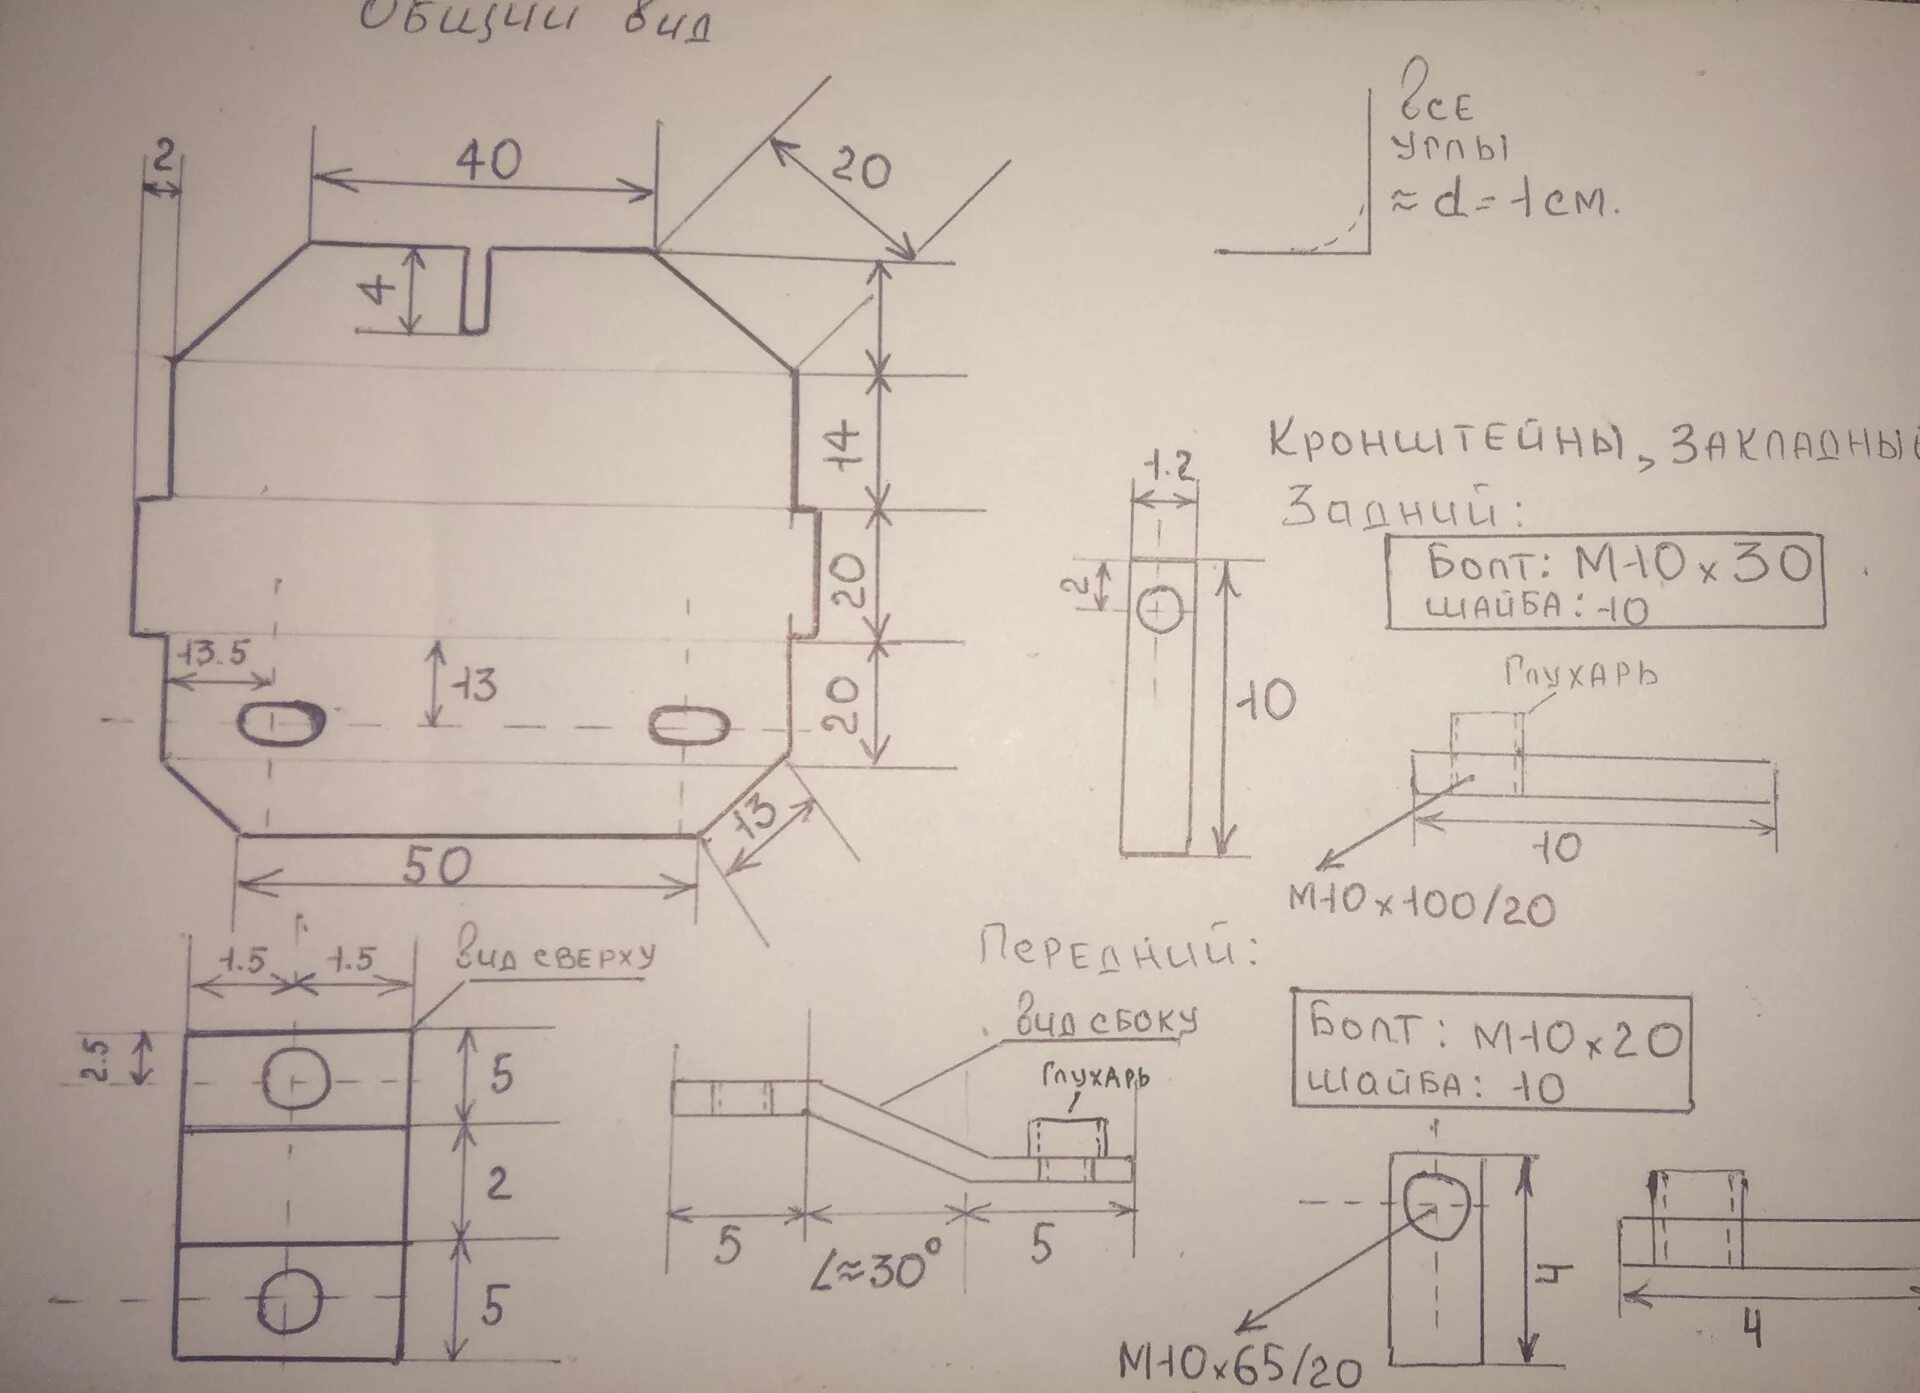 Общий вид
2
40
20
4
все
углы
≈ d = 1 см.
14
20
20
13.5
13
13
50
Кронштейны, закладные
Задний:
Болт: М10 х 30
шайба: 10
1.2
2
10
Глухарь
10
М10 х 100/20
1.5
1.5
вид сверху
2.5
5
2
5
Передний:
вид сбоку
Глухарь
5
∠≈30°
5
Болт: М10 х 20
шайба: 10
4
4
М10 х 65/20